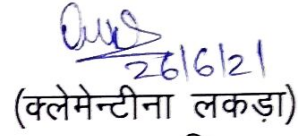 26/6/21
(क्लेमेन्टीना लकड़ा)